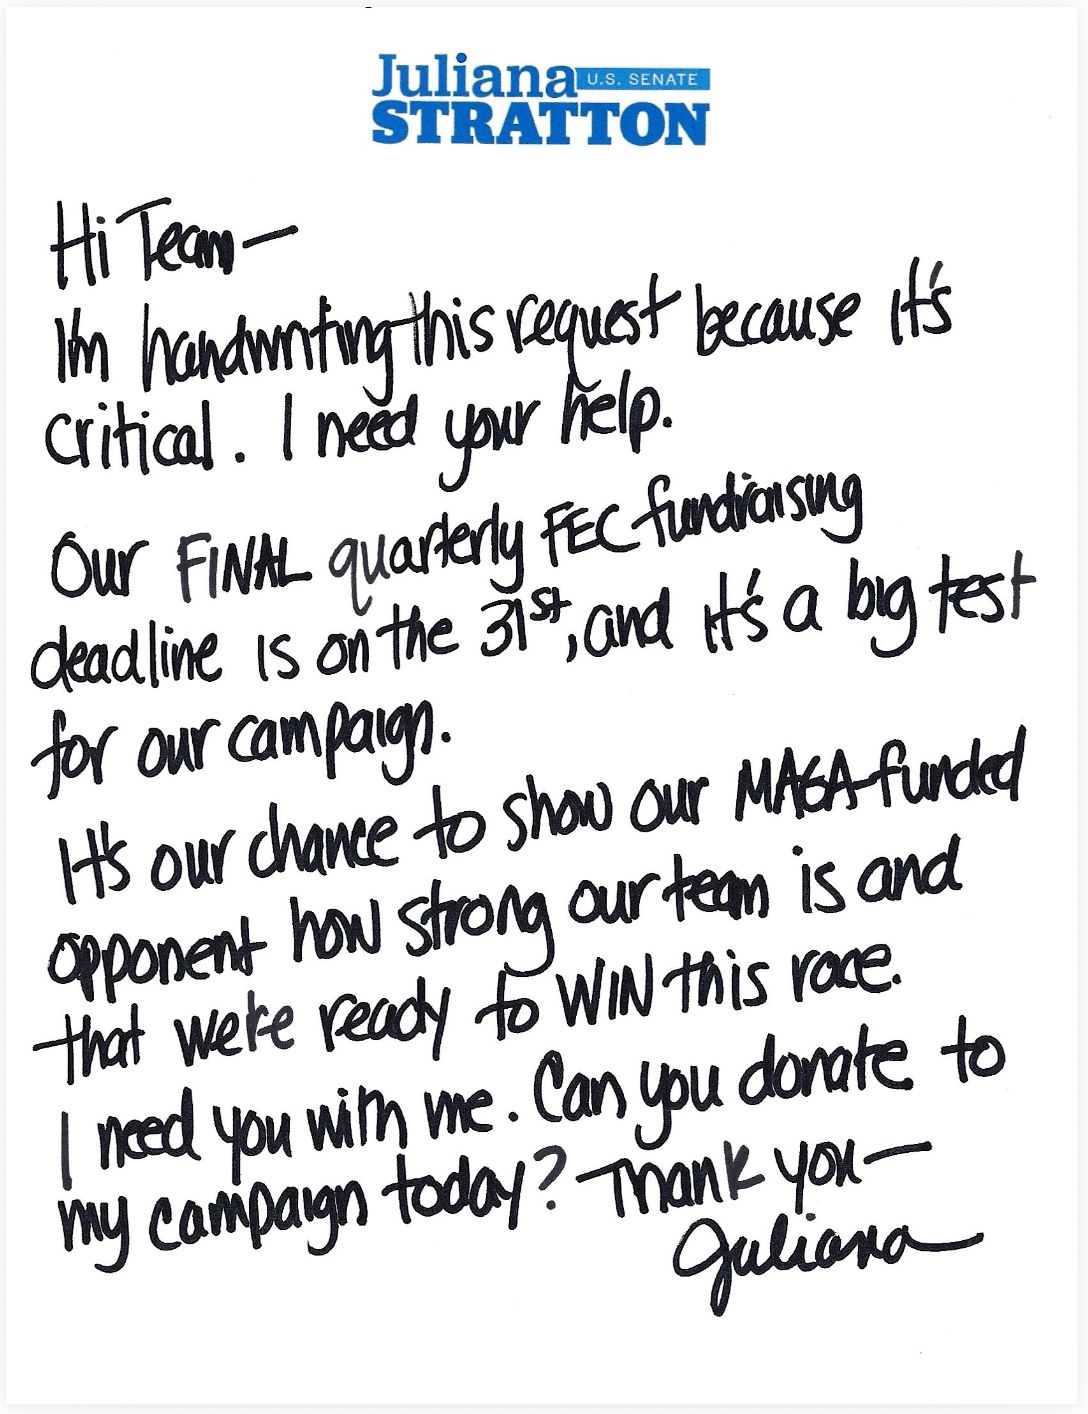 Juliana U.S. SENATE
STRATTON
Hi Team—
I'm handwriting this request because it's
critical. I need your help.
Our FINAL quarterly FEC fundraising
deadline is on the 31st, and it's a big test
for our campaign.
It's our chance to show our MAGA-funded
opponent how strong our team is and
that we're ready to WIN this race.
I need you with me. Can you donate to
my campaign today? Thank you—
Juliana